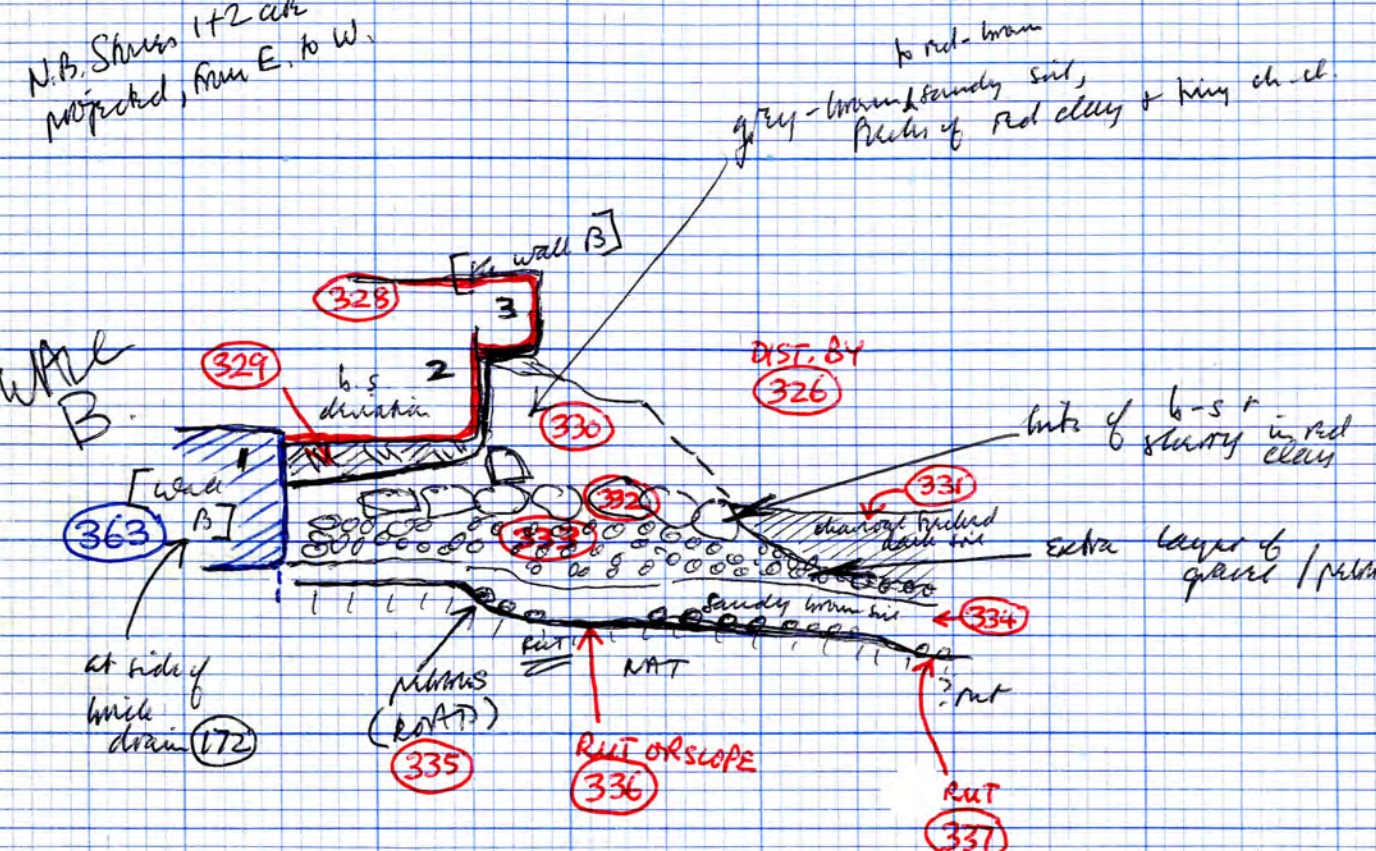 N.B. Stones 1+2 are
projected, from E. to W.
to red-brown
grey-brown sandy soil,
flecks of red clay + tiny ch-cl.
[the wall B]
328
3
WALL
B.
329
b.s.
deviation
2
DIST. BY
326
330
bits of b-s +
slurry in red
clay
1
[wall
B]
363
332
331
charcoal flecked
dark soil
333
Extra layer of
gravel /
sandy brown soil
334
at side of
brick
drain 172
RUT
NAT
pebbles
(ROAD)
335
RUT OR SLOPE
336
? rut
RUT
337